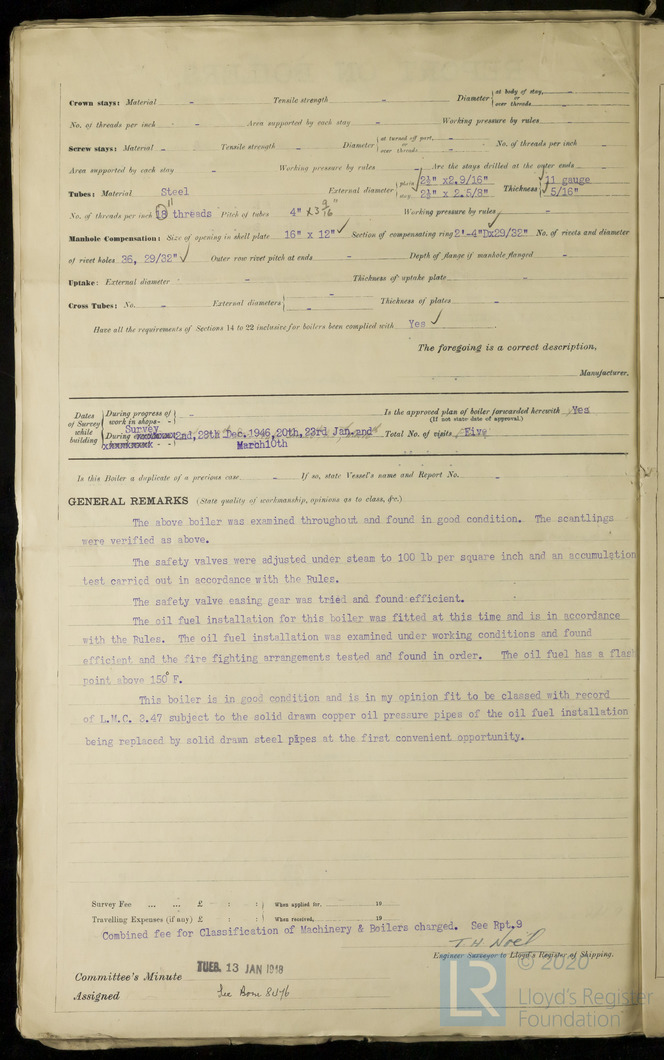 Crown stays: Material - Tensile strength - Diameter { at body of stay, - or over threads -
No. of threads per inch - Area supported by each stay - Working pressure by rules -
Screw stays: Material - Tensile strength - Diameter { at turned off part, - or over threads - No. of threads per inch -
Area supported by each stay - Working pressure by rules - Are the stays drilled at the outer ends -
Tubes: Material Steel External diameter { plain 2½" x2.9/16" Thickness { 11 gauge
stay 2½" x 2.5/8" 5/16"
No. of threads per inch 18 11 threads Pitch of tubes 4" x 3 9/16" Working pressure by rules
Manhole Compensation: Size of opening in shell plate 16" x 12" ✓ Section of compensating ring 2'-4"Dx29/32" No. of rivets and diameter
of rivet holes 36, 29/32" ✓ Outer row rivet pitch at ends - Depth of flange if manhole flanged -
Uptake: External diameter - Thickness of uptake plate -
Cross Tubes: No. - External diameters { - Thickness of plates -
Have all the requirements of Sections 14 to 22 inclusive for boilers been complied with Yes ✓
The foregoing is a correct description,
Manufacturer.
Dates of Survey while building { During progress of work in shops - - } - Is the approved plan of boiler forwarded herewith Yes
(If not state date of approval.)
Survey
During 2nd, 28th Dec. 1946, 20th, 23rd Jan. and Total No. of visits Five
March10th
Is this Boiler a duplicate of a previous case - If so, state Vessel's name and Report No. -
GENERAL REMARKS (State quality of workmanship, opinions as to class, &c.)
The above boiler was examined throughout and found in good condition. The scantlings
were verified as above.
The safety valves were adjusted under steam to 100 lb per square inch and an accumulation
test carried out in accordance with the Rules.
The safety valve easing gear was tried and found efficient.
The oil fuel installation for this boiler was fitted at this time and is in accordance
with the Rules. The oil fuel installation was examined under working conditions and found
efficient and the fire fighting arrangements tested and found in order. The oil fuel has a flash
point above 150° F.
This boiler is in good condition and is in my opinion fit to be classed with record
of L.M.C. 3.47 subject to the solid drawn copper oil pressure pipes of the oil fuel installation
being replaced by solid drawn steel pipes at the first convenient opportunity.
Survey Fee ... ... £ : : } When applied for, 19
Travelling Expenses (if any) £ : : } When received, 19
Combined fee for Classification of Machinery & Boilers charged. See Rpt.9
T. H. Noel
Engineer Surveyor to Lloyd's Register of Shipping.
Committee's Minute TUES. 13 JAN 1948
Assigned See Bom 8476
© 2020
LR Lloyd's Register
Foundation